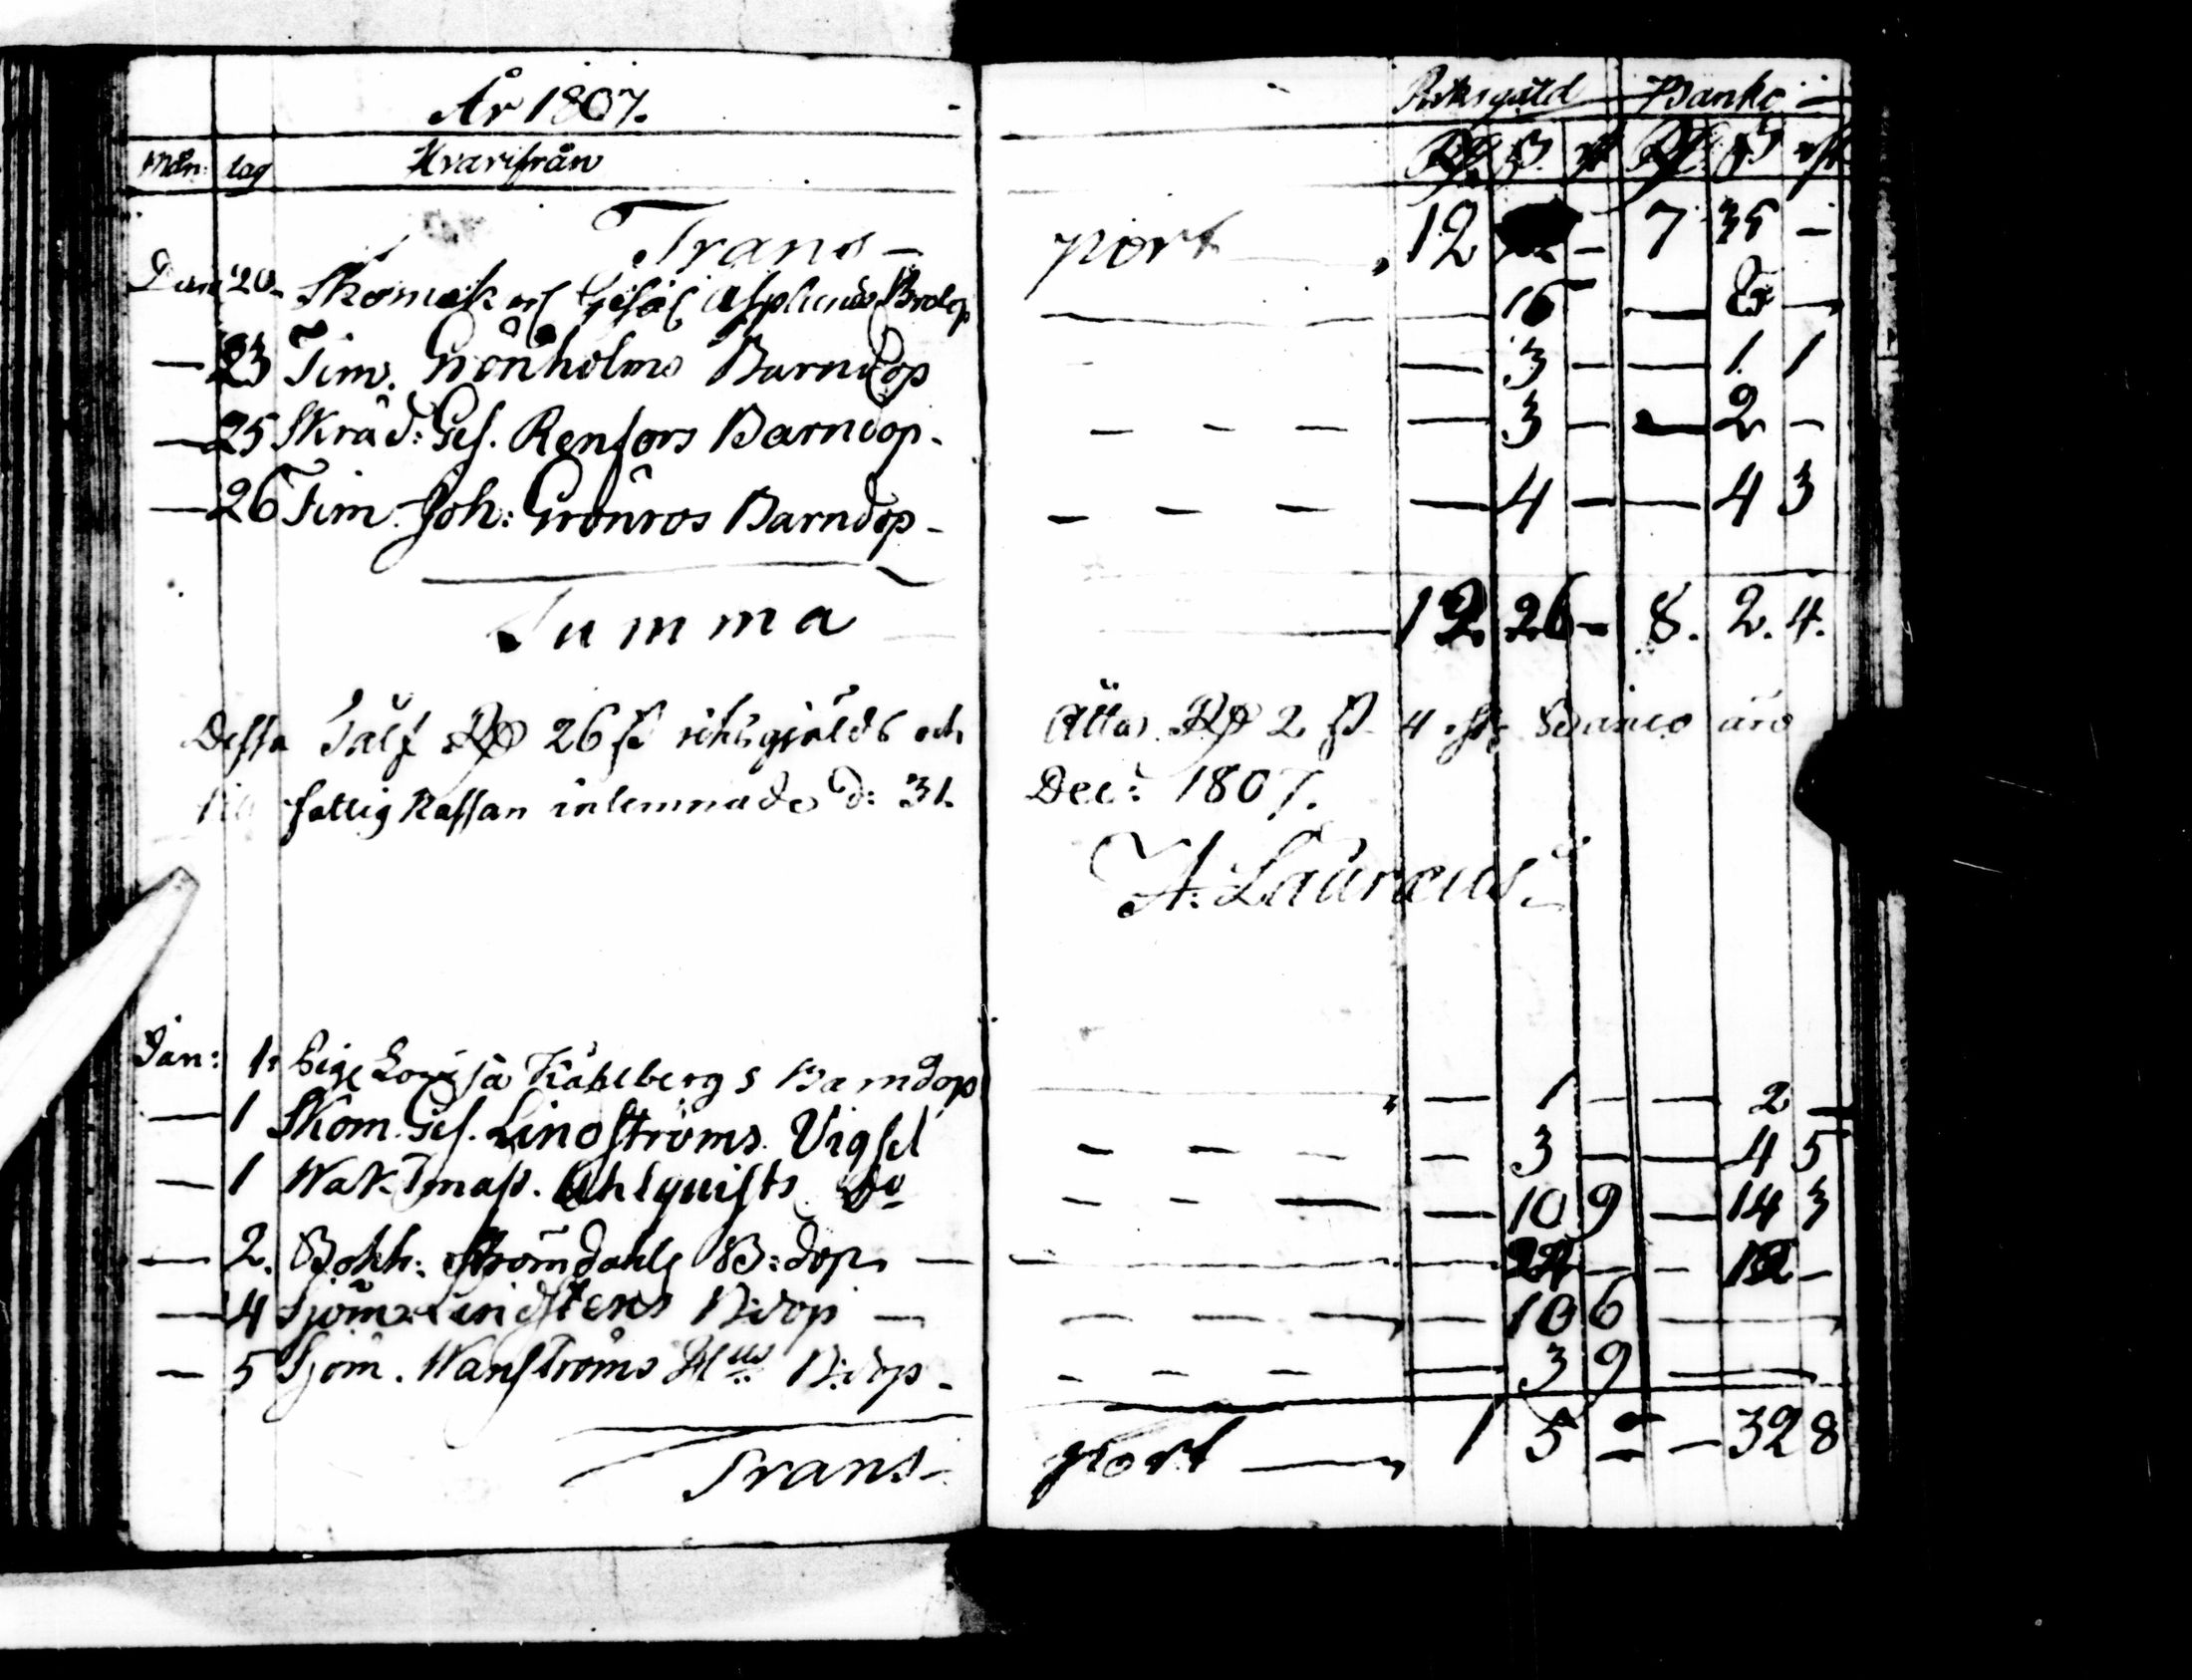 År 1807. Riksgäld Banko
Mån: dag Hvarifrån Rd ß rst Rd ß rst
Trans-port 12 — 7 35 -
20. Skomak Gesäl Asplunds Brölop — 16 — — 8 —
— 23 Tim. Grönholms Barndop — 3 — — 1 1
— 25 Skräd: Ges. Renfors Barndop - — 3 — — 2 -
— 26 Tim. Joh: Grönros Barndop - — 4 — — 4 3
Summa 12 26 - 8. 2. 4.
Dessa Tålf Rd 26 ß riksgjälds och Åtta Rd 2 ß 4 rst Banco äro
till fattig Kassan inlemnade d: 31. Dec: 1807.
A: Lauraeus.
Jan: 1. Pig Lovisa Kahlbergs Barndop — 1 — — 2 —
— 1 Skom. Ges. Lindströms Vigsel — 3 — — 4 5
— 1 Wak. Ahlquists Do — 10 9 — 14 3
— 2. Bokh: Strömdahls B:dop — 24 — — 12 -
— 4 Sjöm: Lindstens B:dop — 10 6 —
— 5 Sjöm. Wanströms B:dop - — 3 9 —
Trans-port — 1 5 — — 32 8